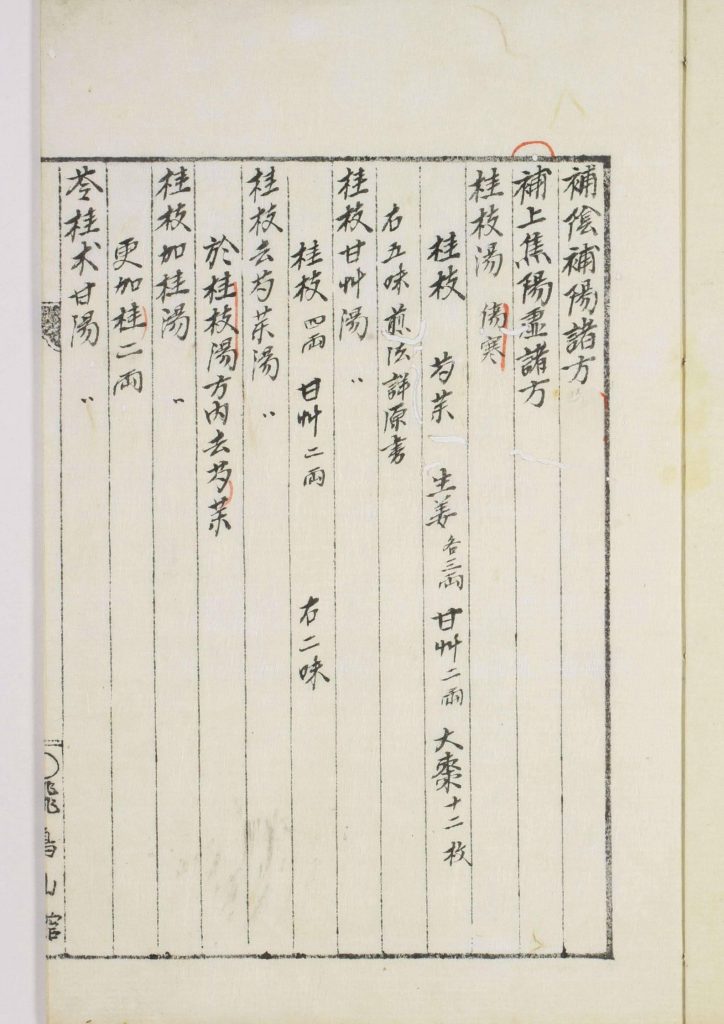 補陰補陽諸方
補上焦陽虛諸方
桂枝湯 傷寒
桂枝 芍藥 生姜 各三兩 甘艸 二兩 大棗 十二枚
右五味煎法詳原書
桂枝甘艸湯 〃
桂枝 四兩 甘艸 二兩 右二味
桂枝去芍藥湯 〃
於桂枝湯方内去芍藥
桂枝加桂湯 〃
更加桂二兩
苓桂朮甘湯 〃
山館